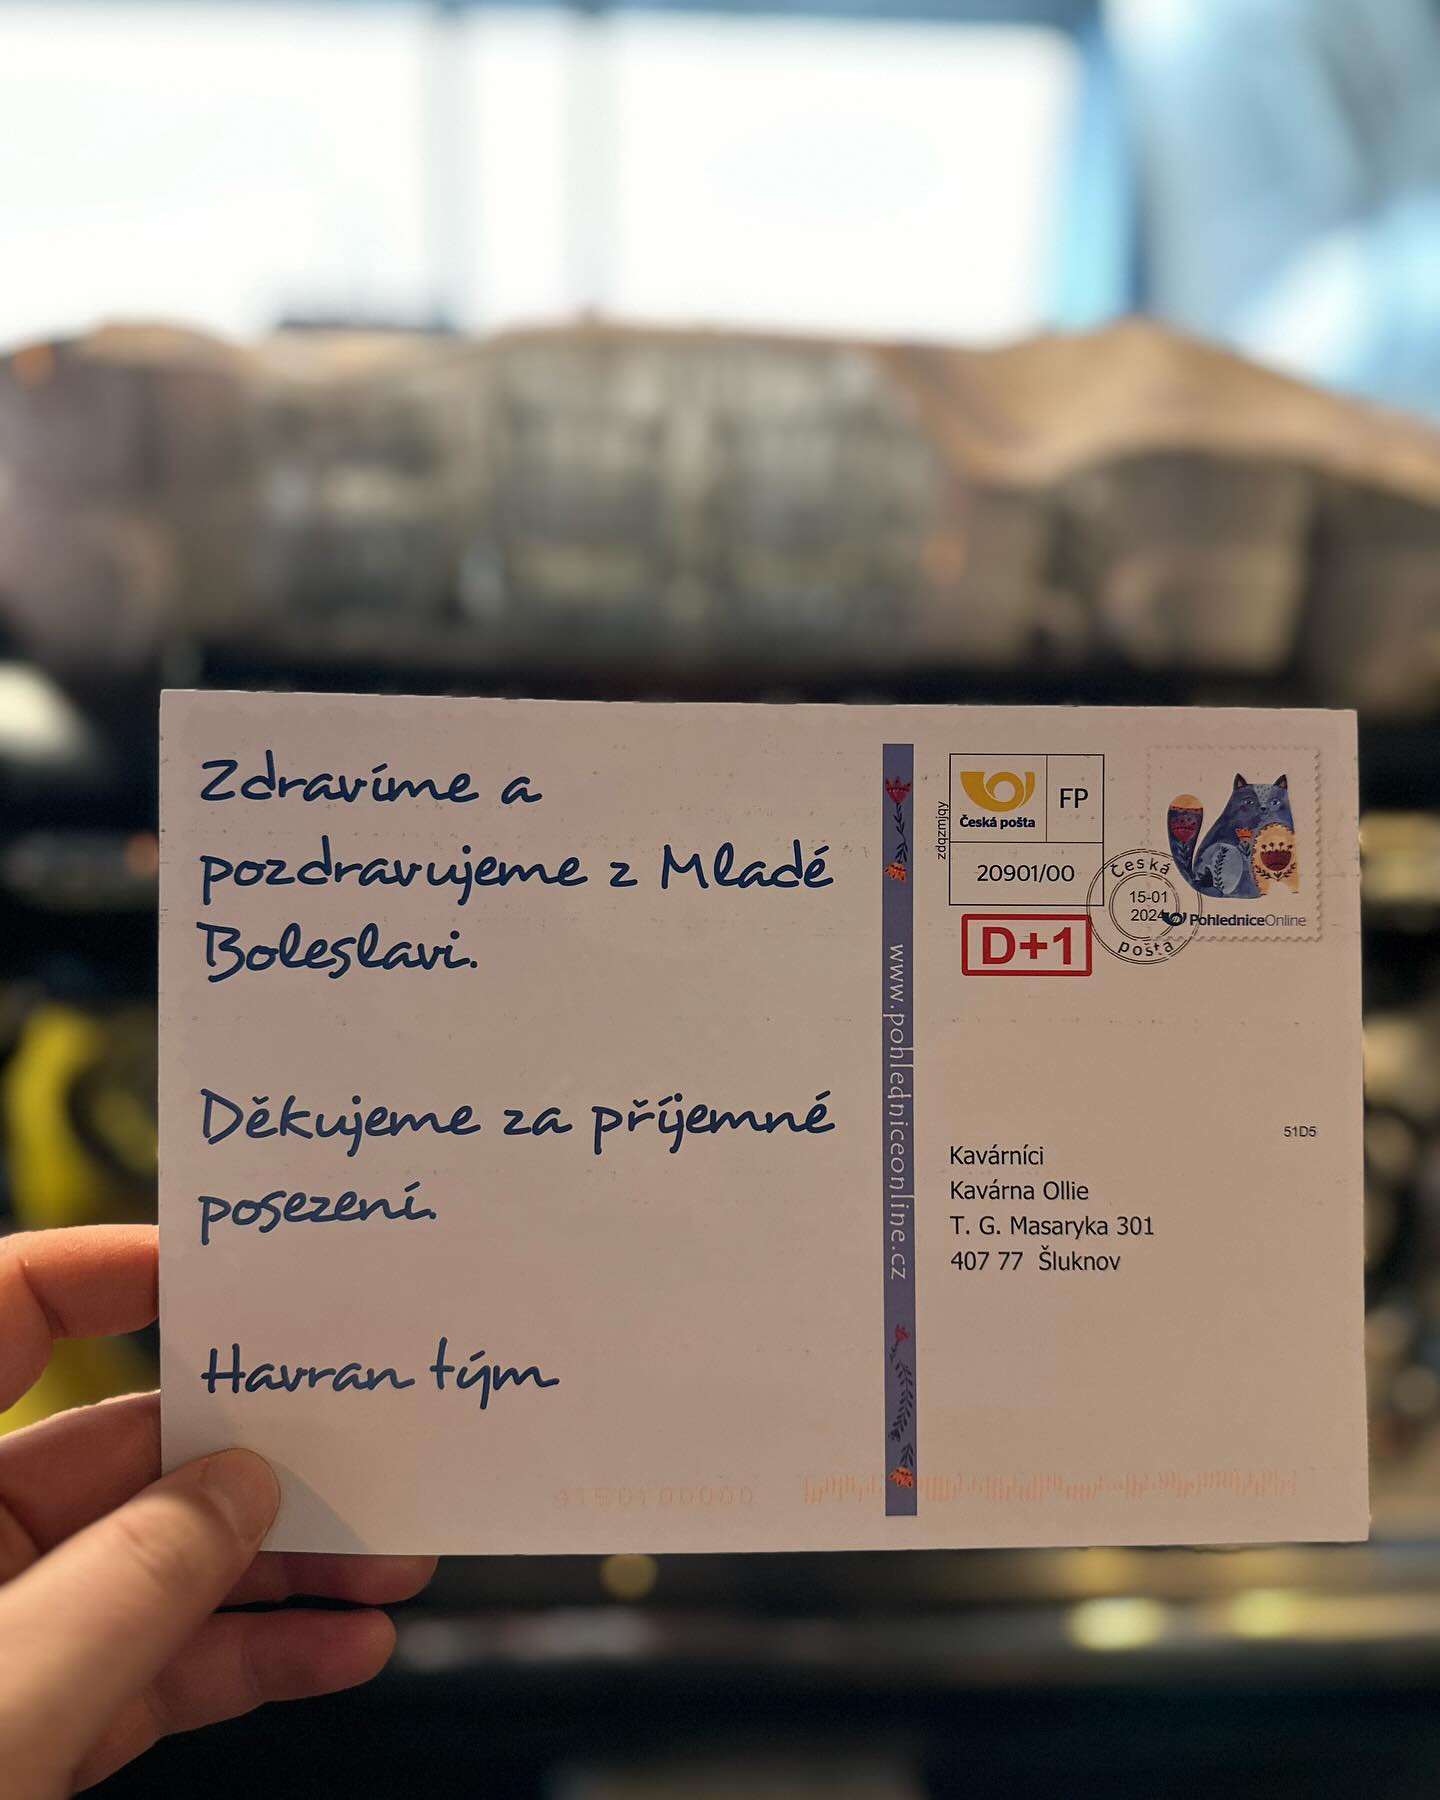 Zdravíme a
pozdravujeme z Mladé
Boleslavi.
Děkujeme za příjemné
posezení.
Havran tým
www.pohledniceonline.cz
zdqzmjqy
Česká pošta
FP
20901/00
D+1
Česká
15-01
2024
pošta
PohledniceOnline
51D5
Kavárníci
Kavárna Ollie
T. G. Masaryka 301
407 77 Šluknov